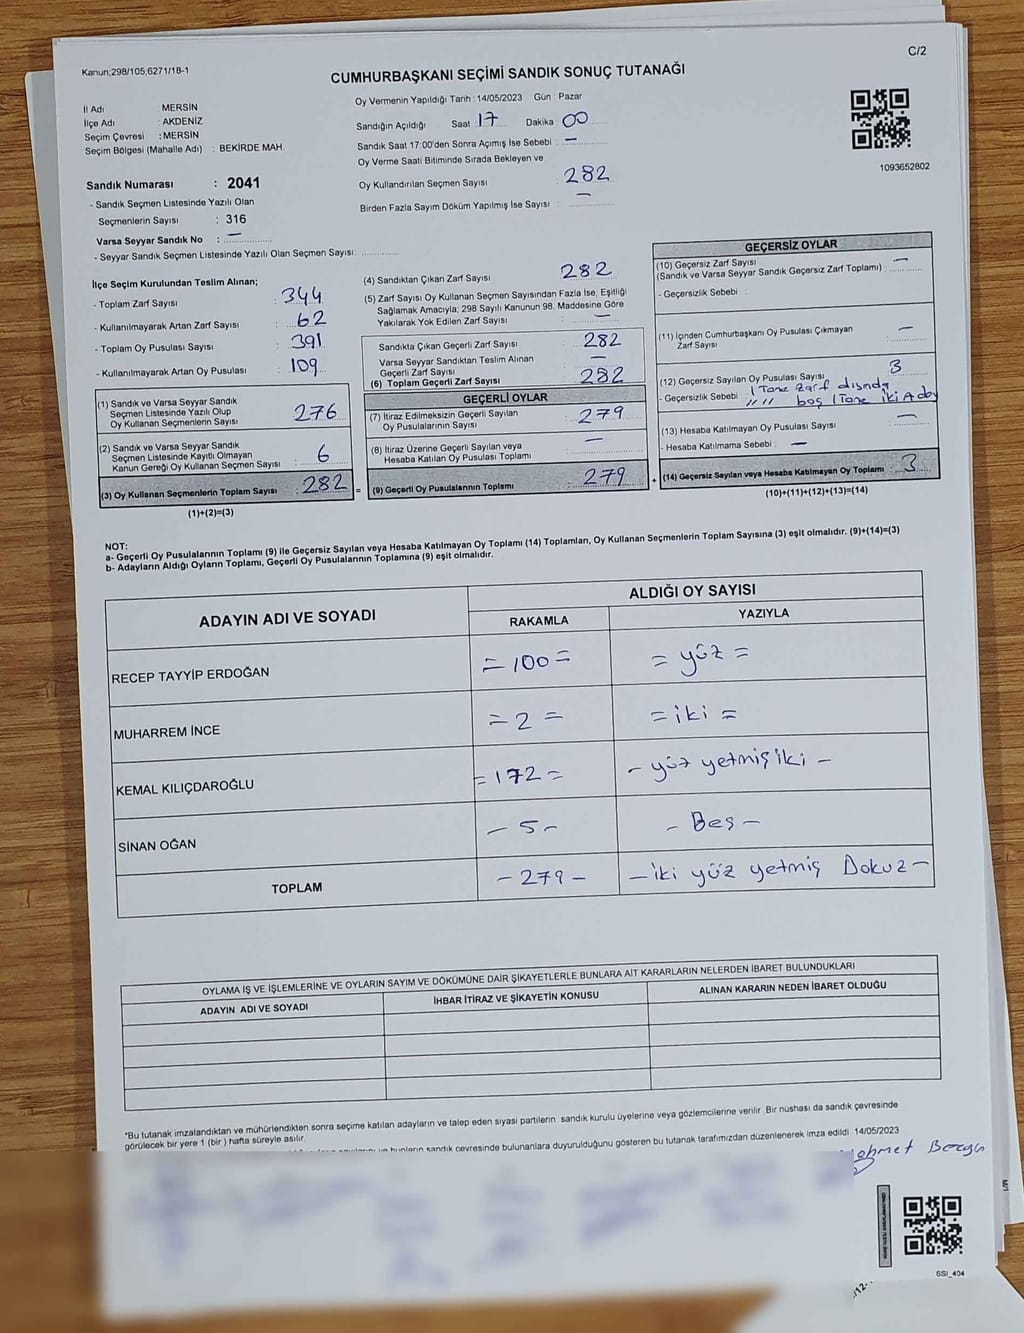 C/2
Kanun;298/105;6271/18-1
CUMHURBAŞKANI SEÇİMİ SANDIK SONUÇ TUTANAĞI
İl Adı : MERSİN
İlçe Adı : AKDENİZ
Seçim Çevresi : MERSİN
Seçim Bölgesi (Mahalle Adı) : BEKİRDE MAH.
Oy Vermenin Yapıldığı Tarih : 14/05/2023 Gün : Pazar
Sandığın Açıldığı Saat : 17 Dakika : 00
Sandık Saat 17:00'den Sonra Açımış İse Sebebi : –
Oy Verme Saati Bitiminde Sırada Bekleyen ve
Oy Kullandırılan Seçmen Sayısı : 282
Birden Fazla Sayım Döküm Yapılmış İse Sayısı : –
1093652802
Sandık Numarası : 2041
- Sandık Seçmen Listesinde Yazılı Olan
Seçmenlerin Sayısı : 316
Varsa Seyyar Sandık No : –
- Seyyar Sandık Seçmen Listesinde Yazılı Olan Seçmen Sayısı:
İlçe Seçim Kurulundan Teslim Alınan;
- Toplam Zarf Sayısı : 344
- Kullanılmayarak Artan Zarf Sayısı : 62
- Toplam Oy Pusulası Sayısı : 391
- Kullanılmayarak Artan Oy Pusulası : 109
(1) Sandık ve Varsa Seyyar Sandık
Seçmen Listesinde Yazılı Olup
Oy Kullanan Seçmenlerin Sayısı : 276
(2) Sandık ve Varsa Seyyar Sandık
Seçmen Listesinde Kayıtlı Olmayan
Kanun Gereği Oy Kullanan Seçmen Sayısı : 6
(3) Oy Kullanan Seçmenlerin Toplam Sayısı : 282 =
(1)+(2)=(3)
(4) Sandıktan Çıkan Zarf Sayısı 282
(5) Zarf Sayısı Oy Kullanan Seçmen Sayısından Fazla İse, Eşitliği
Sağlamak Amacıyla; 298 Sayılı Kanunun 98. Maddesine Göre
Yakılarak Yok Edilen Zarf Sayısı : –
Sandıkta Çıkan Geçerli Zarf Sayısı : 282
Varsa Seyyar Sandıktan Teslim Alınan
Geçerli Zarf Sayısı : –
(6) Toplam Geçerli Zarf Sayısı : 282
GEÇERLİ OYLAR
(7) İtiraz Edilmeksizin Geçerli Sayılan
Oy Pusulalarının Sayısı : 279
(8) İtiraz Üzerine Geçerli Sayılan veya
Hesaba Katılan Oy Pusulası Toplamı : –
(9) Geçerli Oy Pusulalarının Toplamı : 279 +
GEÇERSİZ OYLAR
(10) Geçersiz Zarf Sayısı
(Sandık ve Varsa Seyyar Sandık Geçersiz Zarf Toplamı) : –
- Geçersizlik Sebebi :
(11) İçinden Cumhurbaşkanı Oy Pusulası Çıkmayan
Zarf Sayısı : –
(12) Geçersiz Sayılan Oy Pusulası Sayısı : 3
- Geçersizlik Sebebi : 1 Tane Zarf dışında
" // // boş 1 Tane iki Aday
(13) Hesaba Katılmayan Oy Pusulası Sayısı : –
- Hesaba Katılmama Sebebi : –
(14) Geçersiz Sayılan veya Hesaba Katılmayan Oy Toplamı : 3
(10)+(11)+(12)+(13)=(14)
NOT:
a- Geçerli Oy Pusulalarının Toplamı (9) ile Geçersiz Sayılan veya Hesaba Katılmayan Oy Toplamı (14) Toplamları, Oy Kullanan Seçmenlerin Toplam Sayısına (3) eşit olmalıdır. (9)+(14)=(3)
b- Adayların Aldığı Oyların Toplamı, Geçerli Oy Pusulalarının Toplamına (9) eşit olmalıdır.
ADAYIN ADI VE SOYADI ALDIĞI OY SAYISI
RAKAMLA YAZIYLA
RECEP TAYYİP ERDOĞAN = 100 = = yüz =
MUHARREM İNCE = 2 = = iki =
KEMAL KILIÇDAROĞLU = 172 = - yüz yetmiş iki -
SİNAN OĞAN - 5 - - Beş -
TOPLAM - 279 - - iki yüz yetmiş Dokuz -
OYLAMA İŞ VE İŞLEMLERİNE VE OYLARIN SAYIM VE DÖKÜMÜNE DAİR ŞİKAYETLERLE BUNLARA AİT KARARLARIN NELERDEN İBARET BULUNDUKLARI
ADAYIN ADI VE SOYADI İHBAR İTİRAZ VE ŞİKAYETİN KONUSU ALINAN KARARIN NEDEN İBARET OLDUĞU
*Bu tutanak imzalandıktan ve mühürlendikten sonra seçime katılan adayların ve talep eden siyasi partilerin sandık kurulu üyelerine veya gözlemcilerine verilir. Bir nüshası da sandık çevresinde
görülecek bir yere 1 (bir ) hafta süreyle asılır.
bunların sandık çevresinde bulunanlara duyurulduğunu gösteren bu tutanak tarafımızdan düzenlenerek imza edildi. 14/05/2023
M/1
SSI_404